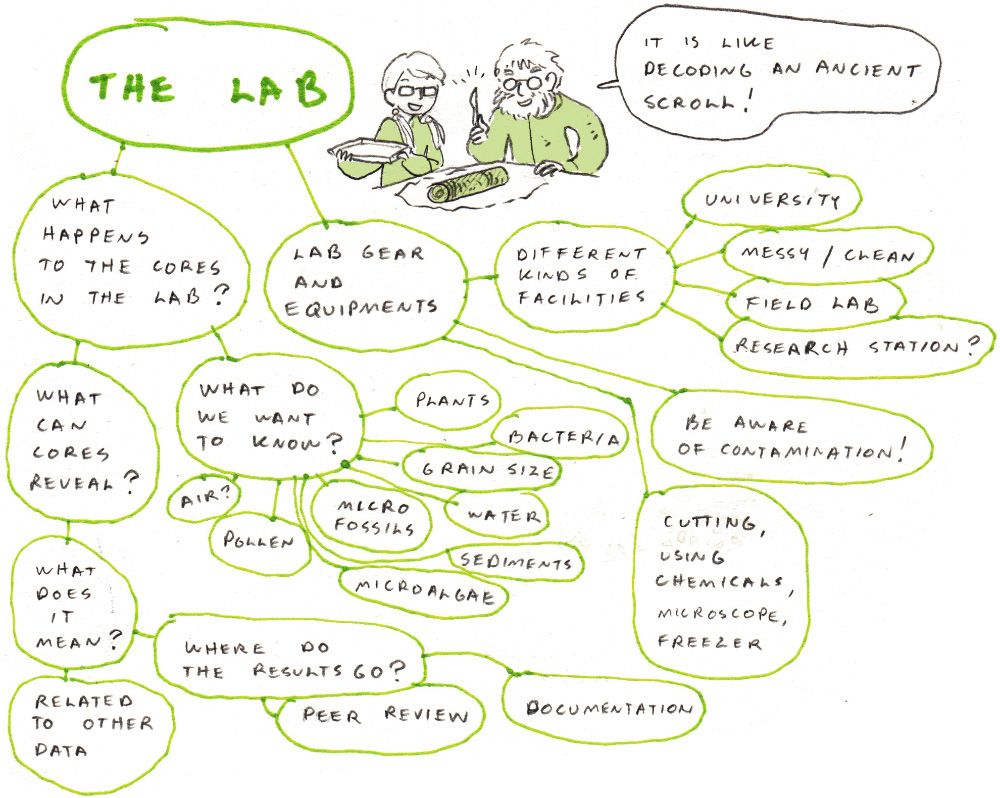 THE LAB
IT IS LIKE
DECODING AN ANCIENT
SCROLL!
WHAT
HAPPENS
TO THE CORES
IN THE LAB?
LAB GEAR
AND
EQUIPMENTS
DIFFERENT
KINDS OF
FACILITIES
UNIVERSITY
MESSY / CLEAN
FIELD LAB
RESEARCH STATION?
WHAT
CAN
CORES
REVEAL?
WHAT DO
WE WANT
TO KNOW?
PLANTS
BACTERIA
GRAIN SIZE
WATER
MICRO
FOSSILS
SEDIMENTS
MICROALGAE
POLLEN
AIR?
BE AWARE
OF CONTAMINATION!
CUTTING,
USING
CHEMICALS,
MICROSCOPE,
FREEZER
WHAT
DOES
IT
MEAN?
WHERE DO
THE RESULTS GO?
PEER REVIEW
DOCUMENTATION
RELATED
TO OTHER
DATA